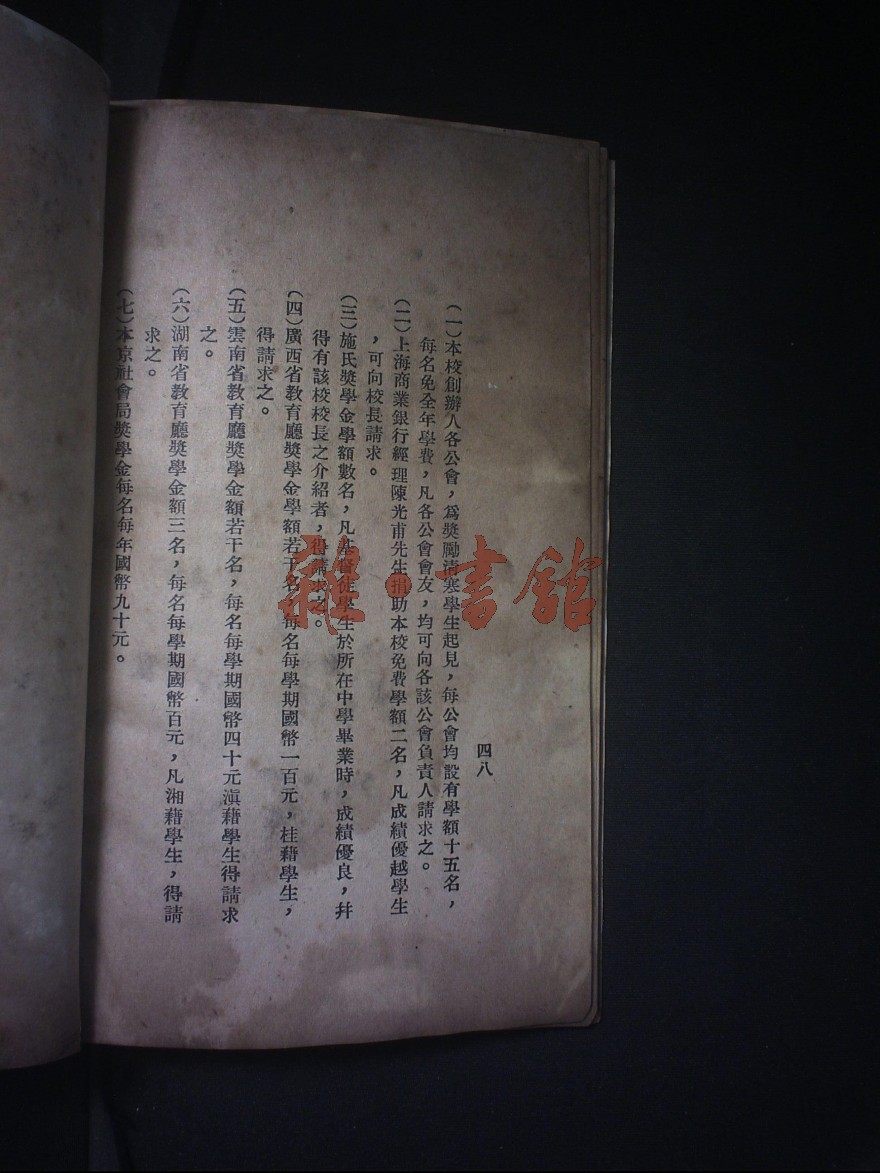 四八
(一)本校創辦人各公會，爲獎勵清寒學生起見，每公會均設有學額十五名，
每名免全年學費，凡各公會會友，均可向各該公會負責人請求之。
(二)上海商業銀行經理陳光甫先生捐助本校免費學額二名，凡成績優越學生
，可向校長請求。
(三)施氏獎學金學額數名，凡基督徒學生於所在中學畢業時，成績優良，幷
得有該校校長之介紹者，得請求之。
(四)廣西省教育廳獎學金學額若干名，每名每學期國幣一百元，桂藉學生，
得請求之。
(五)雲南省教育廳獎學金額若干名，每名每學期國幣四十元滇藉學生得請求
之。
(六)湖南省教育廳獎學金額三名，每名每學期國幣百元，凡湘藉學生，得請
求之。
(七)本京社會局獎學金每名每年國幣九十元。
雜·書館